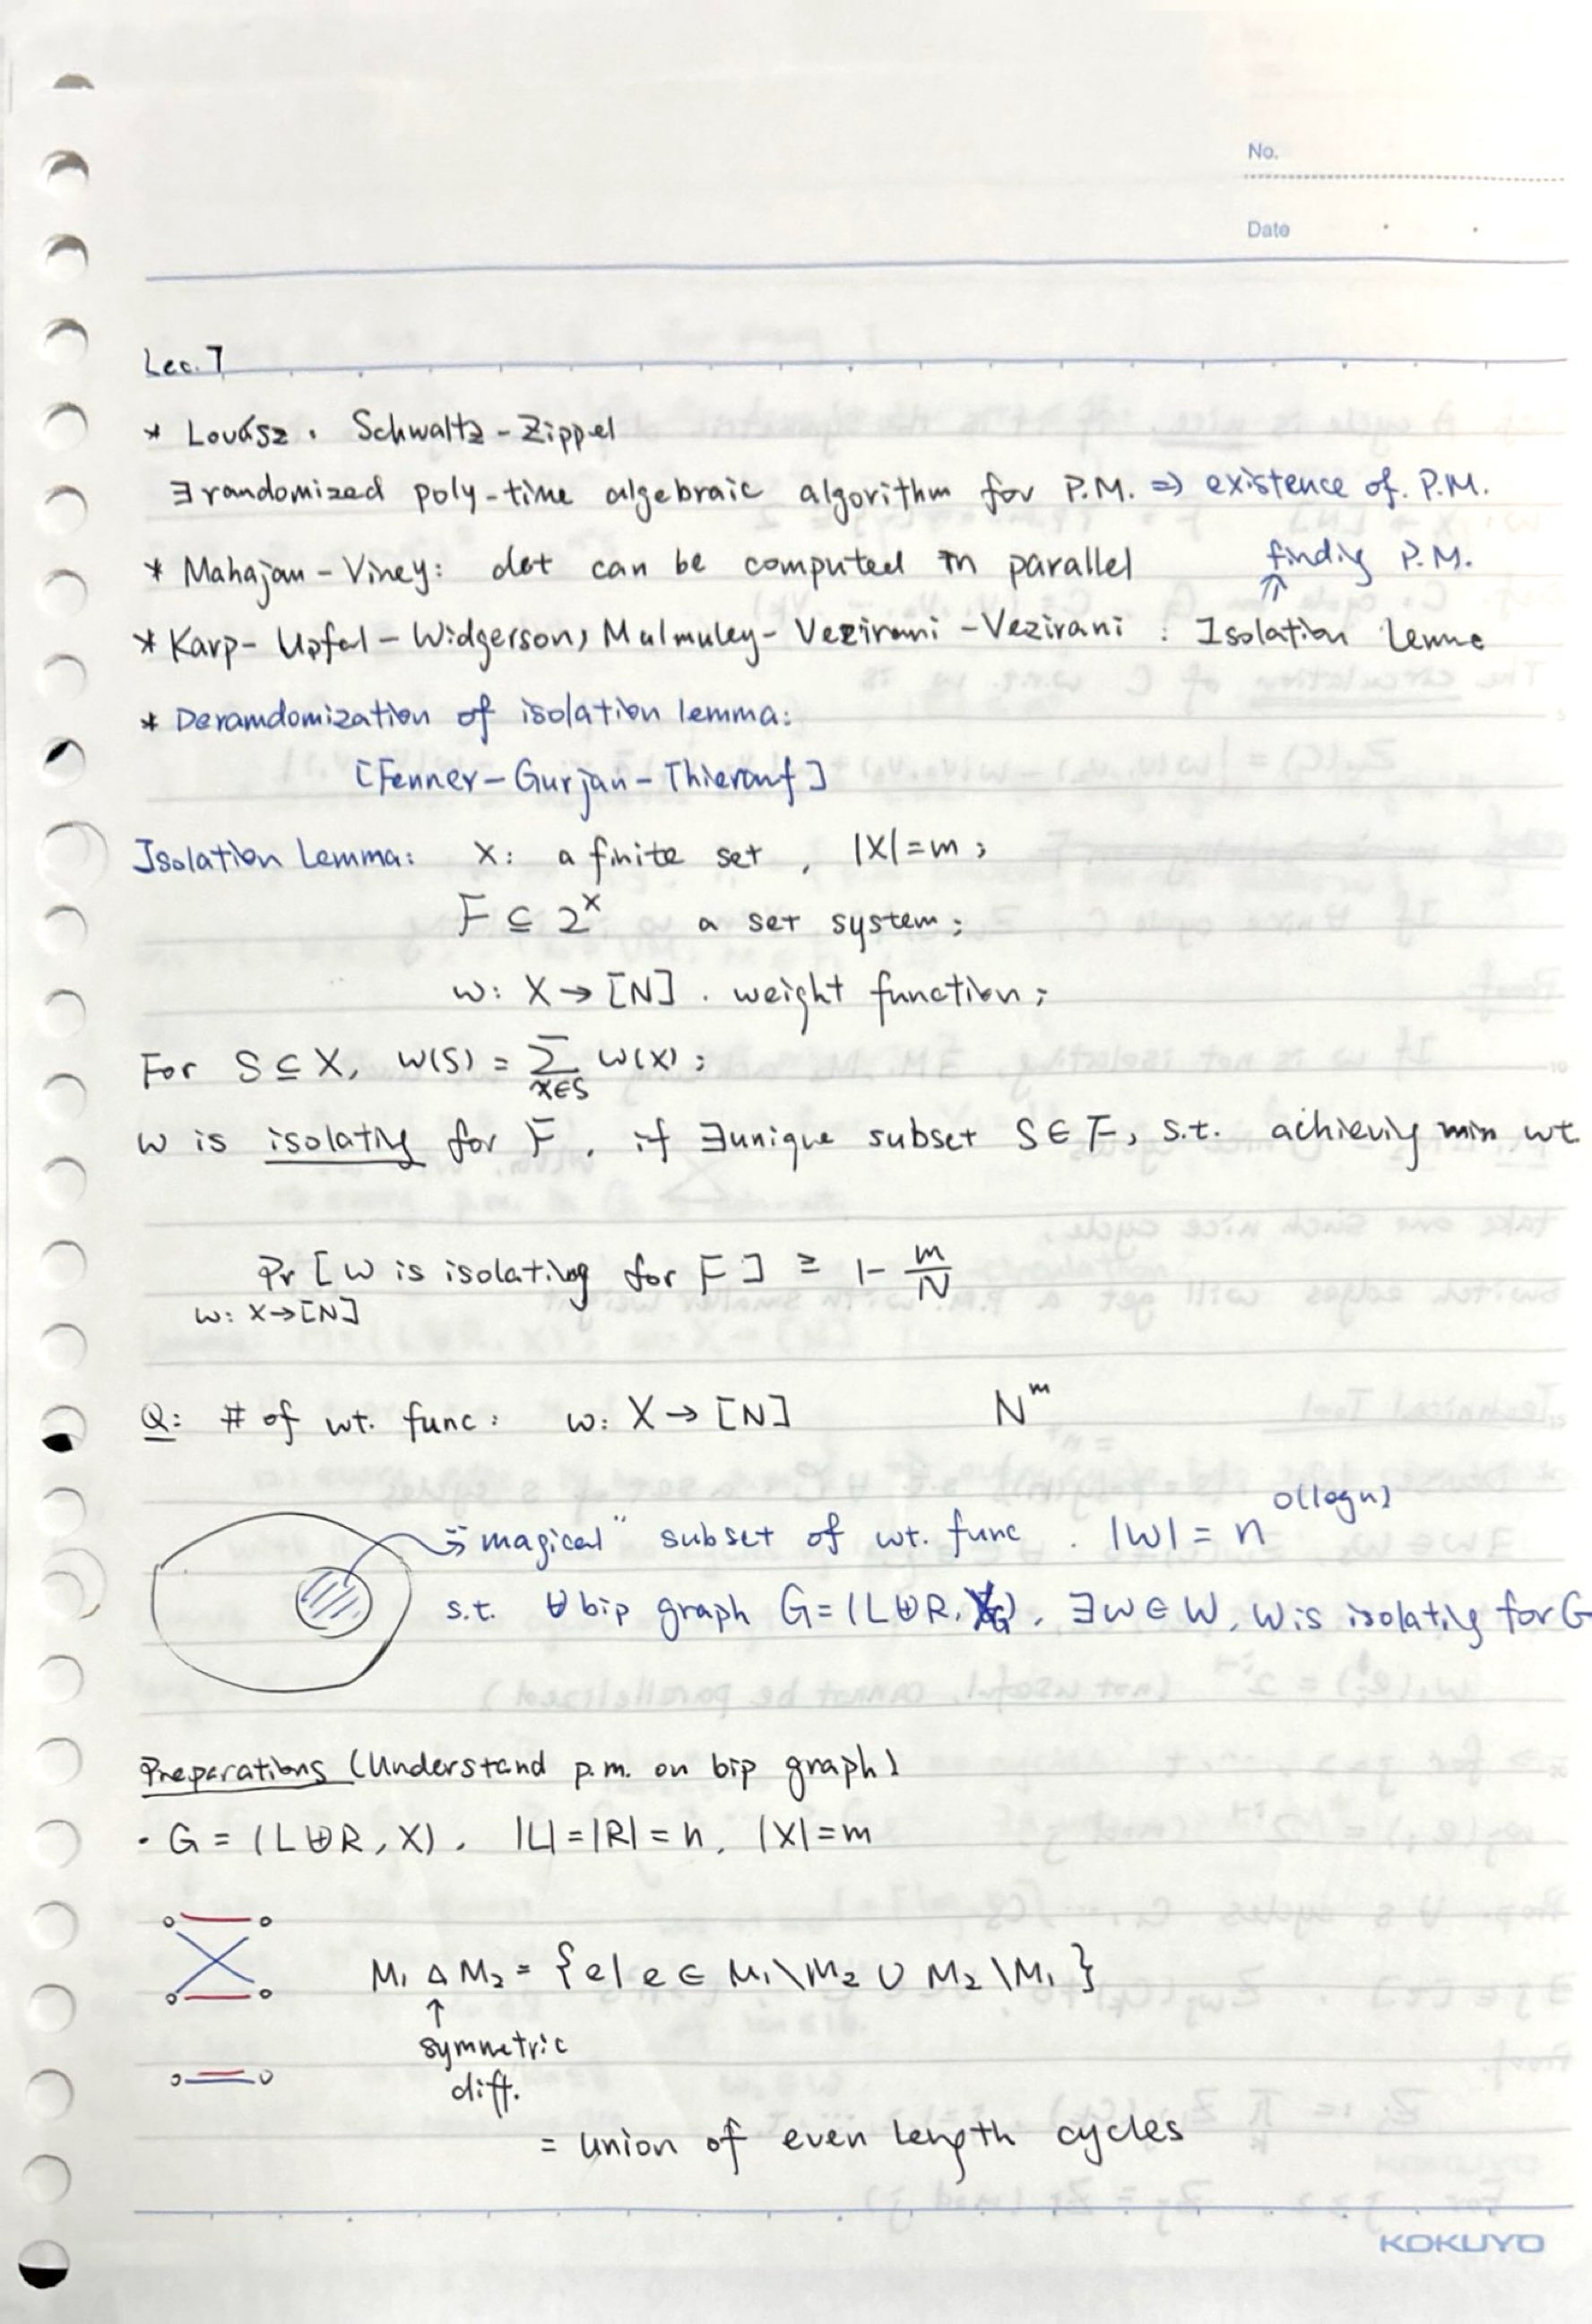 No.
Date
Lec. 7
* Lovász. Schwaltz-Zippel
∃ randomized poly-time algebraic algorithm for P.M. ⇒ existence of. P.M.
* Mahajan-Viney: det can be computed in parallel findig P.M.
⇑
* Karp-Upfal-Widgerson, Mulmuley-Vezirani-Vezirani: Isolation Lemma
* Deramdomization of isolation lemma:
[Fenner-Gurjan-Thierauf]
Isolation Lemma: X: a finite set, |X|=m;
F ⊆ 2^X a set system;
w: X → [N]. weight function;
For S ⊆ X, w(S) = ∑_{x∈S} w(x);
w is isolatig for F, if ∃unique subset S ∈ F, s.t. achievig min wt.
Pr [w is isolating for F] ≥ 1 - m/N
w: X→[N]
Q: # of wt. func: w: X → [N] N^m
"magical" subset of wt. func. |W| = n^{O(log n)}
s.t. ∀ bip graph G=(L⊎R, ), ∃w ∈ W, w is isolatig for G
Preparations (Understand p.m. on bip graph)
· G = (L⊎R, X), |L|=|R|=n, |X|=m
M₁ Δ M₂ = {e | e ∈ M₁\M₂ ∪ M₂\M₁}
↑
symmetric
diff.
= union of even length cycles
KOKUYO